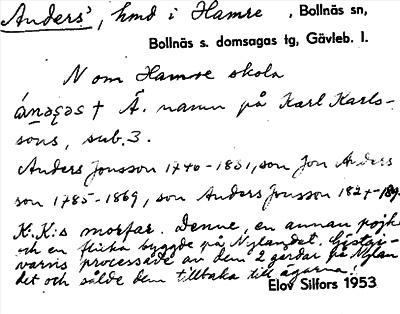 Anders', hmd i Hamre, Bollnäs sn,
Bollnäs s. domsagas tg, Gävleb. l.
N om Hamre skola
ánəgəs † Ä. namn på Karl Karls-
sons, sub. 3.
Anders Jonsson 1740-1831, son Jon Anders
son 1785-1869, son Anders Jonsson 1824-189
K. K:s morfar. Denne, en annan pojke
och en flicka byggde på Nylandet. Gästgi-
varns processade av dem 2 gårdar på Nylan
det och sålde dem tillbaka till ägarna!
Elov Silfors 1953